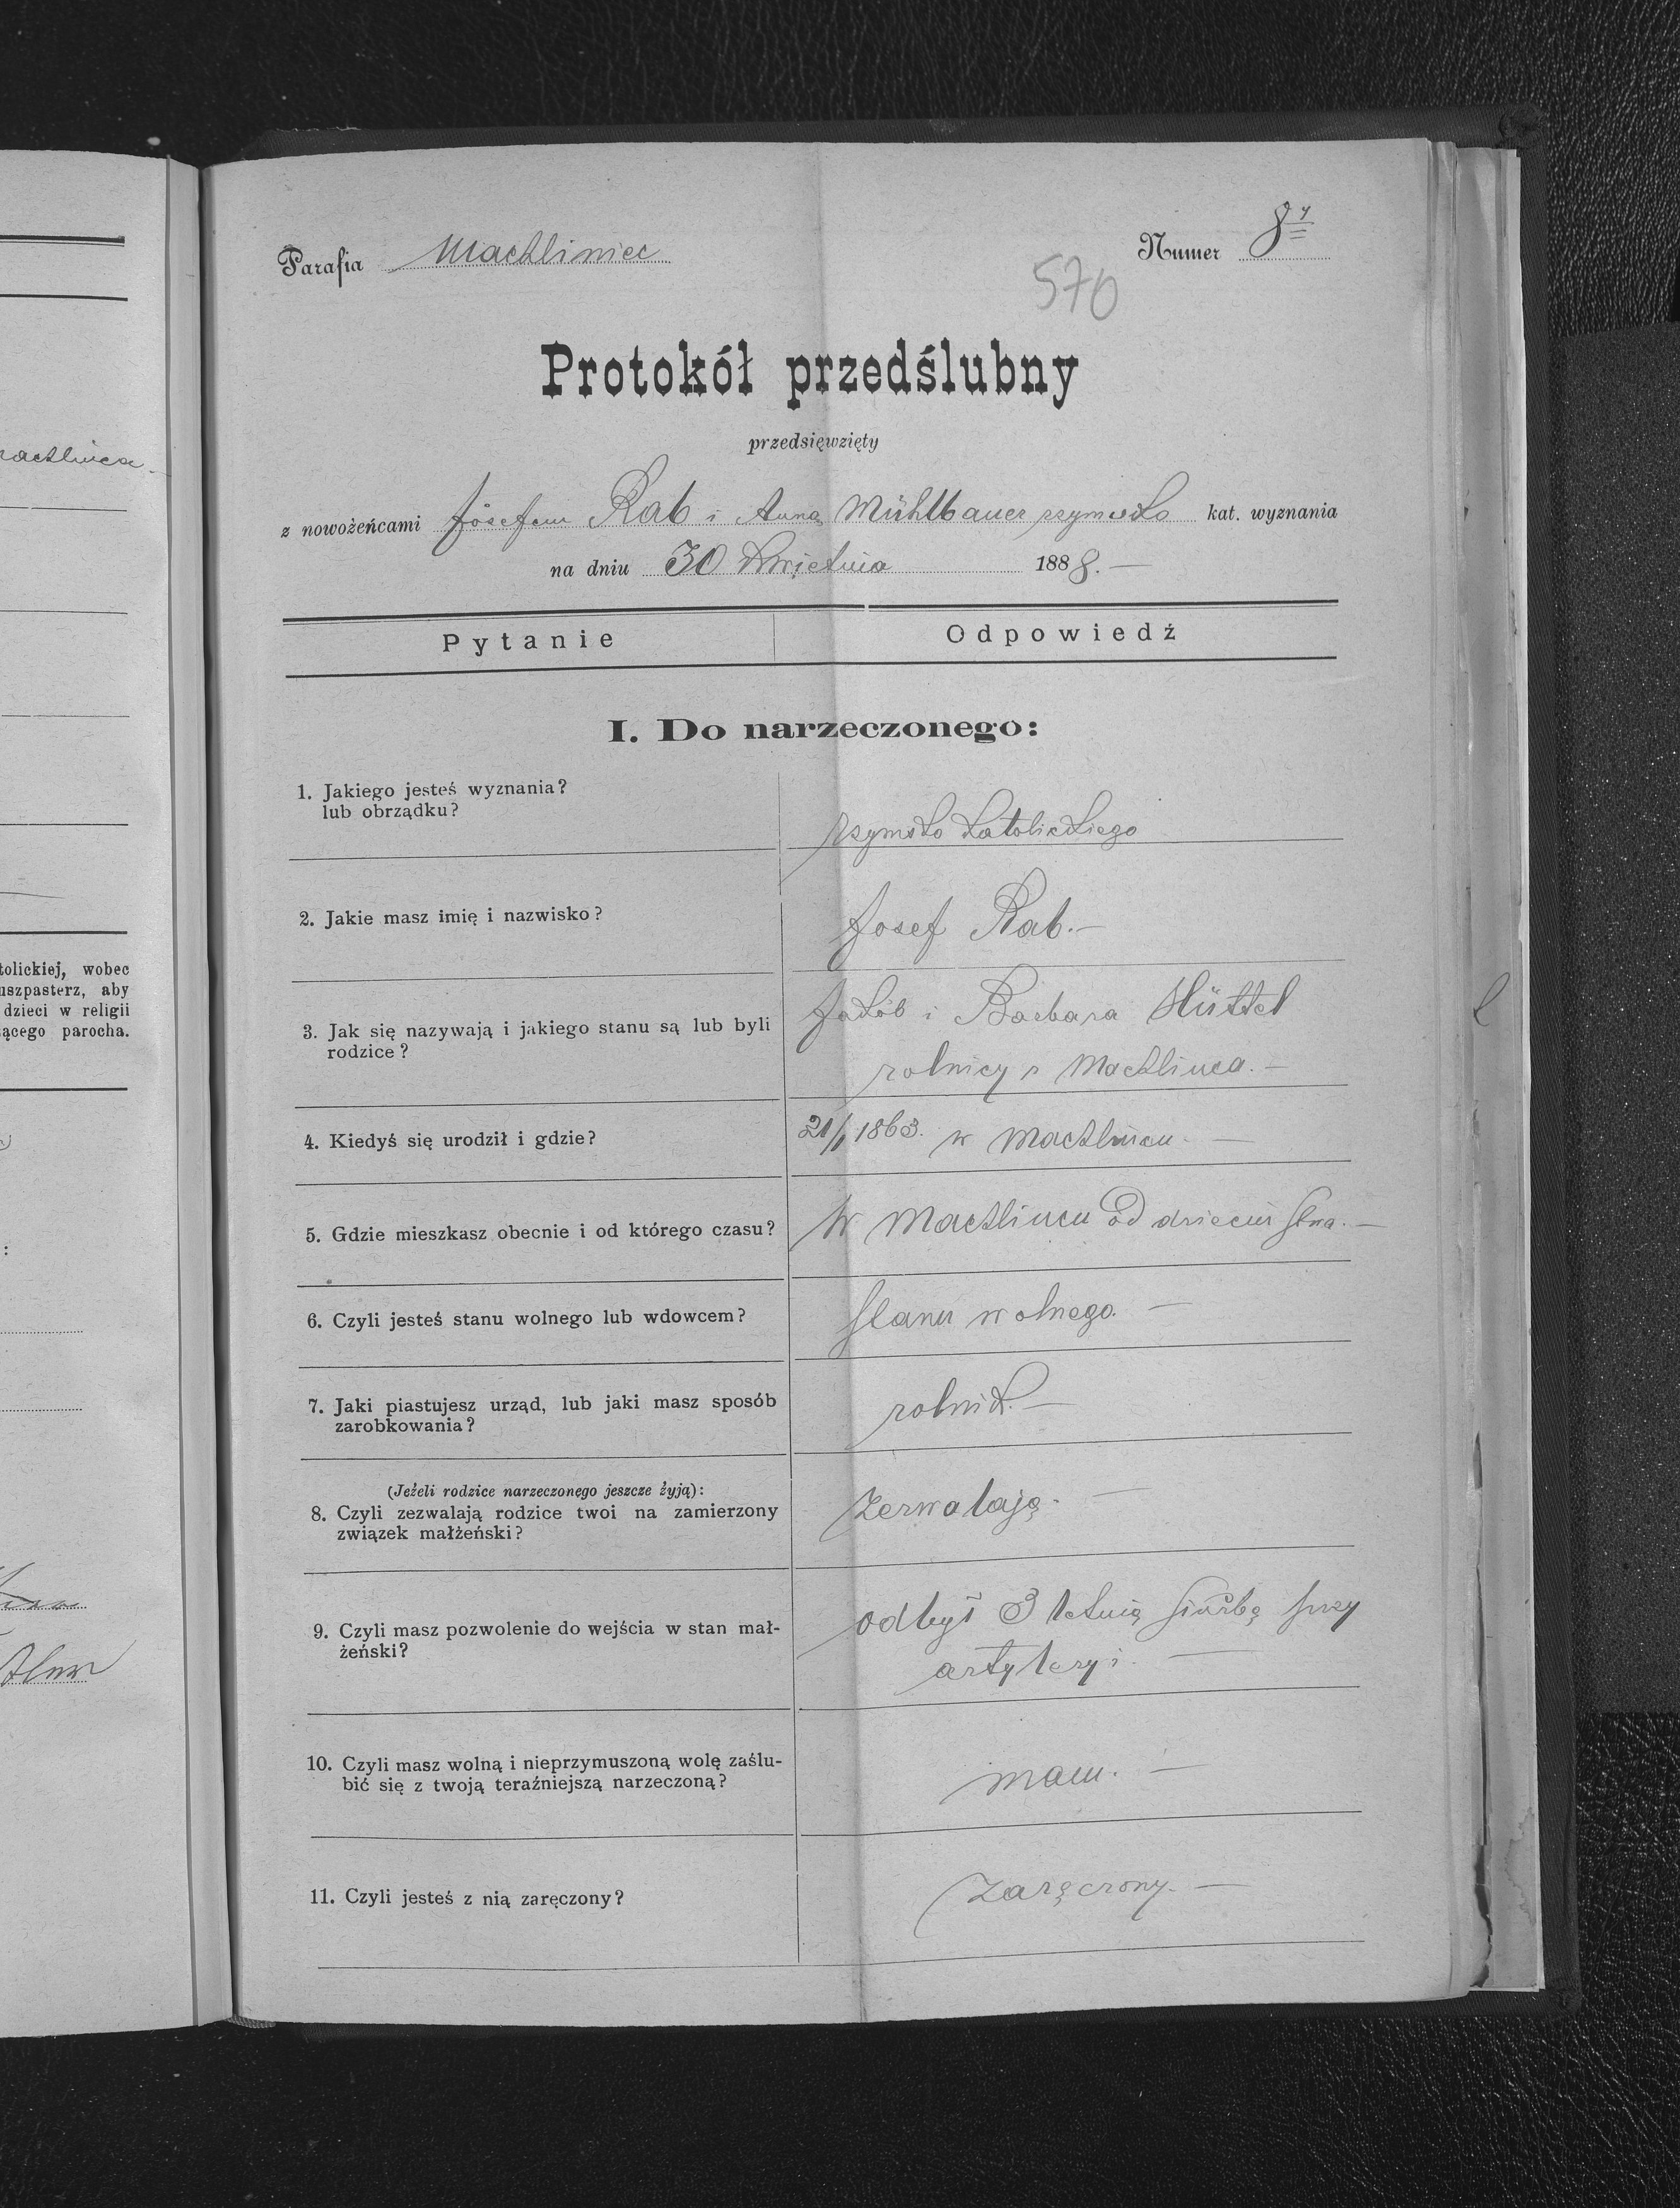 Parafia Machliniec
Numer 8y
570
Protokół przedślubny
przedsięwzięty
z nowożeńcami Józefem Rab i Anną Mühlbauer rzymsko kat. wyznania
na dniu 30 kwietnia 1888. —
Pytanie
Odpowiedź
I. Do narzeczonego:
1. Jakiego jesteś wyznania?
lub obrządku?
rzymsko katolickiego
2. Jakie masz imię i nazwisko?
Josef Rab. —
3. Jak się nazywają i jakiego stanu są lub byli
rodzice?
Jakób i Barbara Hüttel
rolnicy z Machlinca. —
4. Kiedyś się urodził i gdzie?
21/1 1863. w Machlincu. —
5. Gdzie mieszkasz obecnie i od którego czasu?
W Machlincu od dziecinstwa. —
6. Czyli jesteś stanu wolnego lub wdowcem?
stanu wolnego. —
7. Jaki piastujesz urząd, lub jaki masz sposób
zarobkowania?
rolnik. —
(Jeżeli rodzice narzeczonego jeszcze żyją):
8. Czyli zezwalają rodzice twoi na zamierzony
związek małżeński?
zezwalają. —
9. Czyli masz pozwolenie do wejścia w stan mał-
żeński?
odbył 3 letnią służbę przy
artyleryi. —
10. Czyli masz wolną i nieprzymuszoną wolę zaślu-
bić się z twoją teraźniejszą narzeczoną?
mam. —
11. Czyli jesteś z nią zaręczony?
zaręczony. —
tolickiej, wobec
uszpasterz, aby
dzieci w religii
ącego parocha.